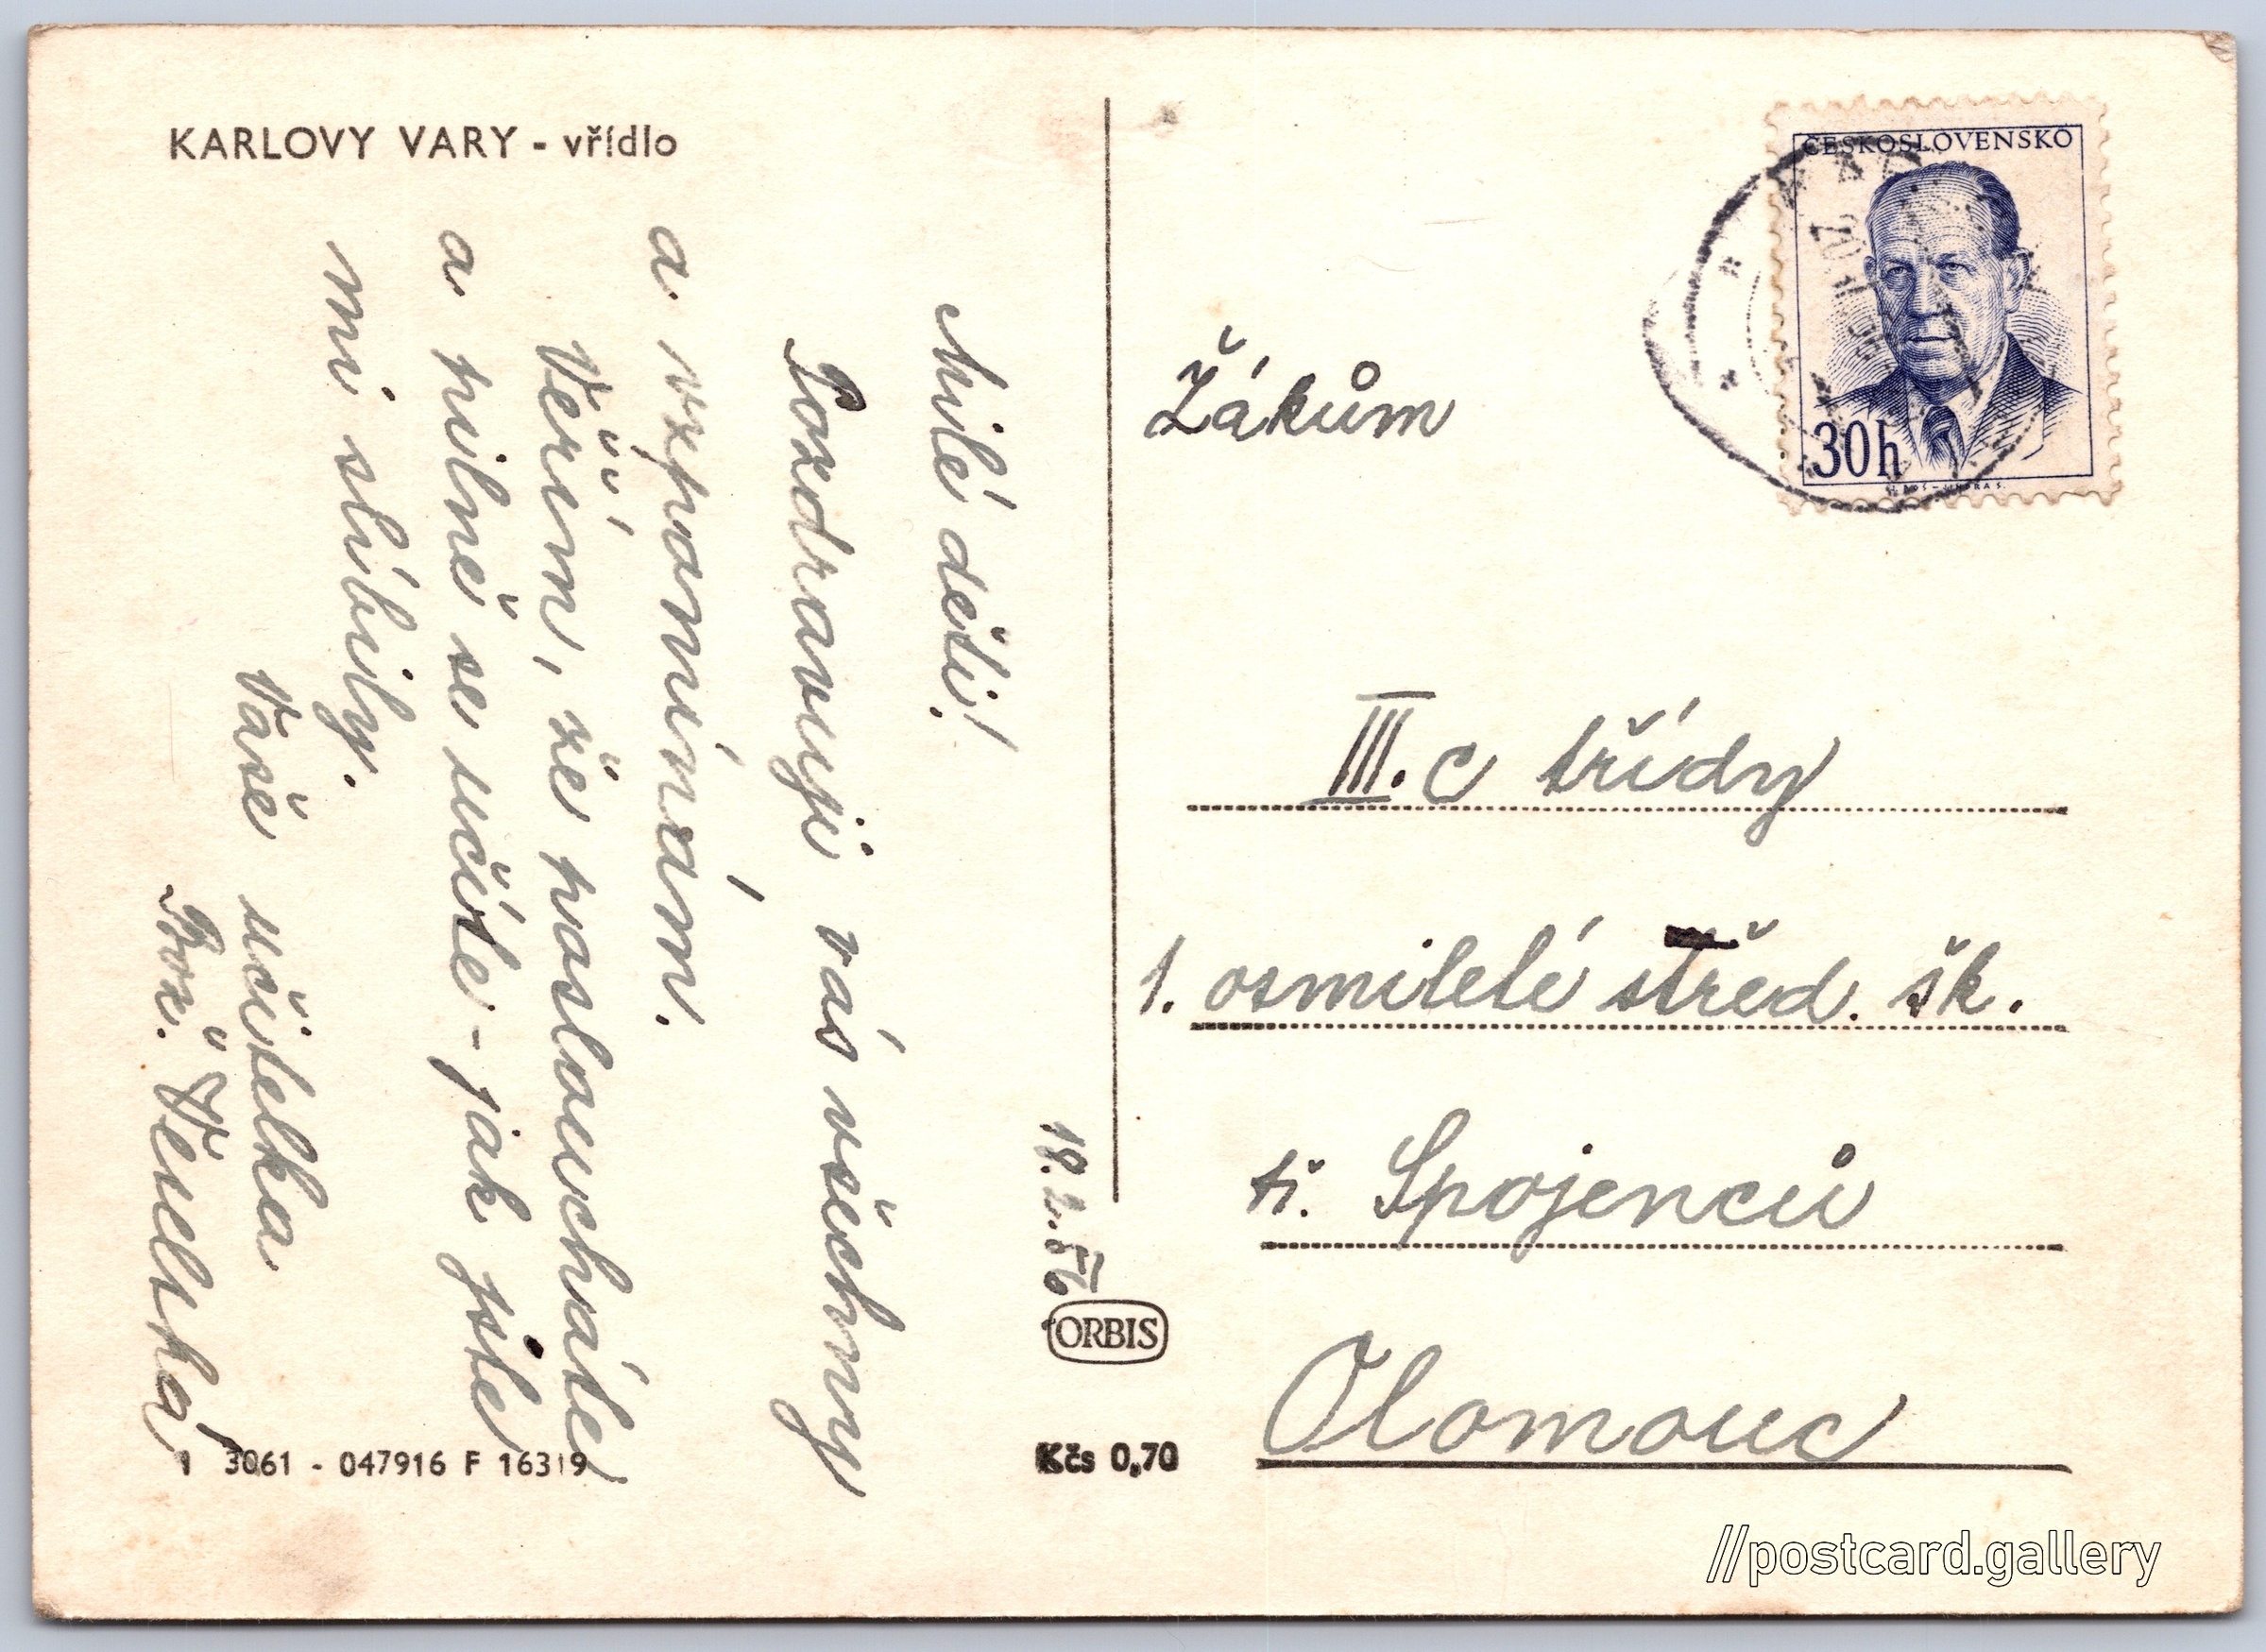 KARLOVY VARY - vřídlo
Milé děti!
Pozdravuji vás všechny
a vzpomínám.
Věřím, že posloucháte
a pilně se učíte - jak jste
mi slíbily.
Vaše učitelka
Bož. Veselská
18.2.56
ORBIS
Kčs 0,70
3061 - 047916 F 16319
ČESKOSLOVENSKO
30h
Žákům
III. c třídy
1. osmileté střed. šk.
tř. Spojenců
Olomouc
//postcard.gallery